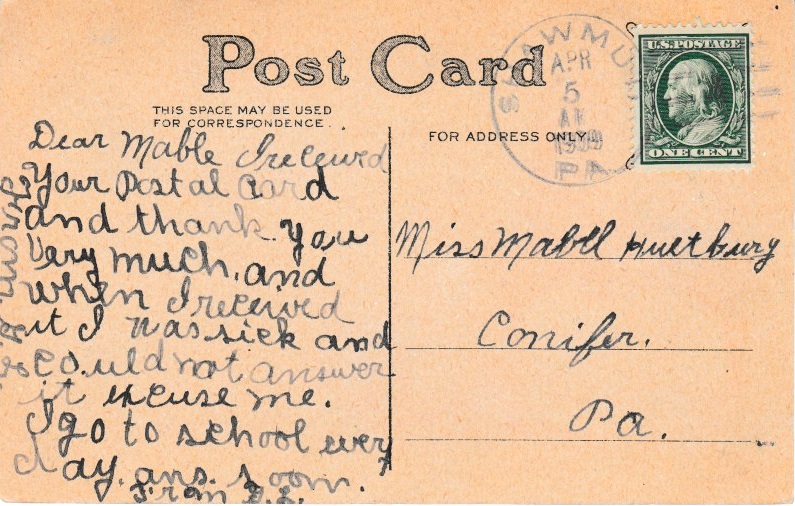 Post Card
THIS SPACE MAY BE USED
FOR CORRESPONDENCE.
FOR ADDRESS ONLY.
APR
5
1909
PA
U.S. POSTAGE
ONE CENT
Dear Mable I received
Your Postal Card
and thank you
Very much, and
When I received
it I was sick and
could not answer
it excuse me.
I go to school every
day. ans. soon.
From
Miss Mabell Hultburg
Conifer.
Pa.